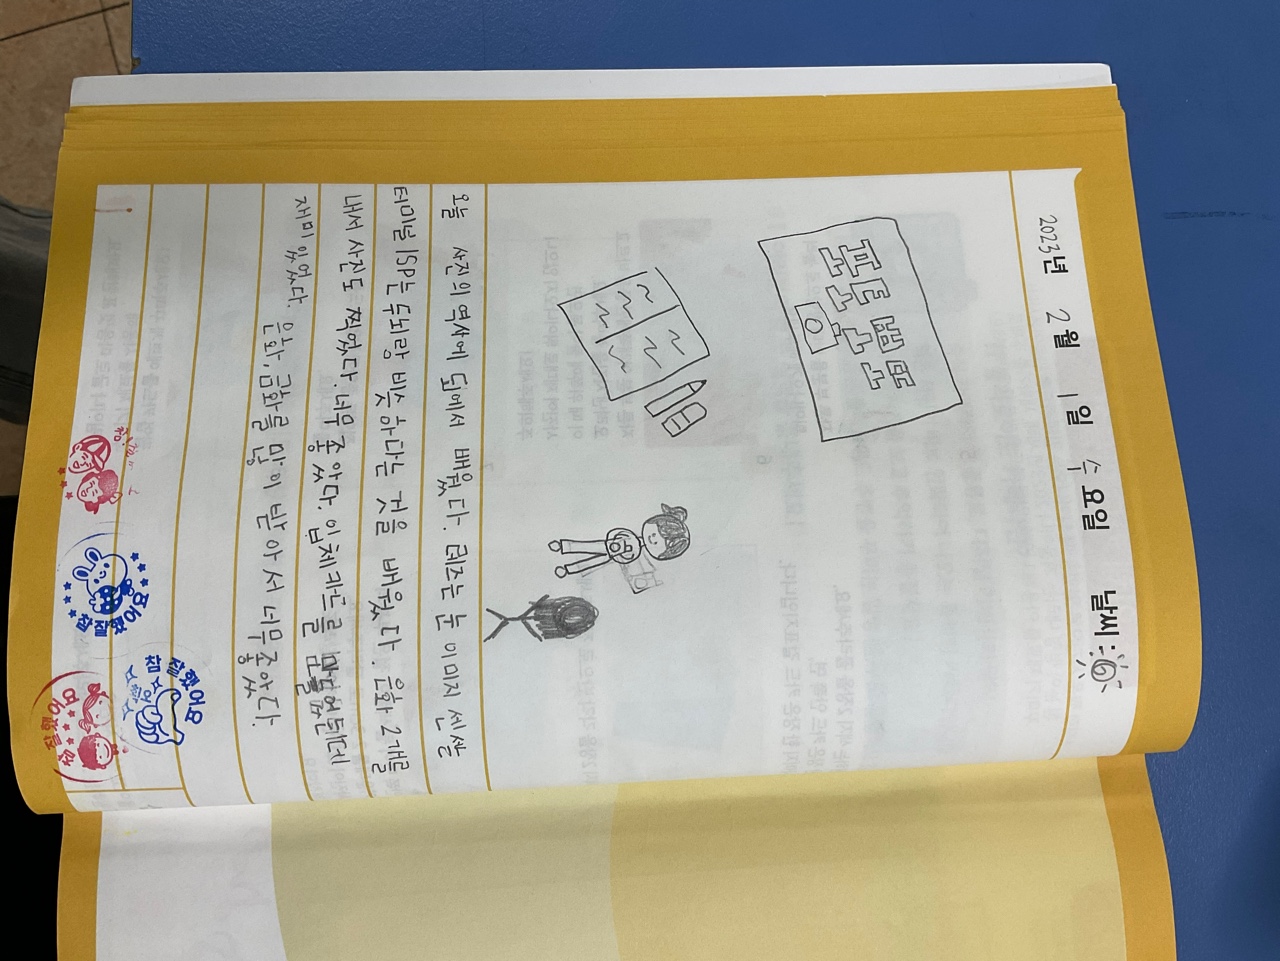 2023년 2월 1일 수요일 날씨:
포토뽐또
오늘 사진의 역사에 되에서 배웠다. 렌즈는 눈 이미지 센셀
터미널 ISP는 두뇌랑 비슷하다는 것을 배웠다. 은화 2개를
내서 사진도 찍었다. 너무 좋았다. 입체카드를 만들었는데
재미있었다. 은화, 금화를 많이 받아서 너무좋았다.
참 잘했어요
참 잘했어요